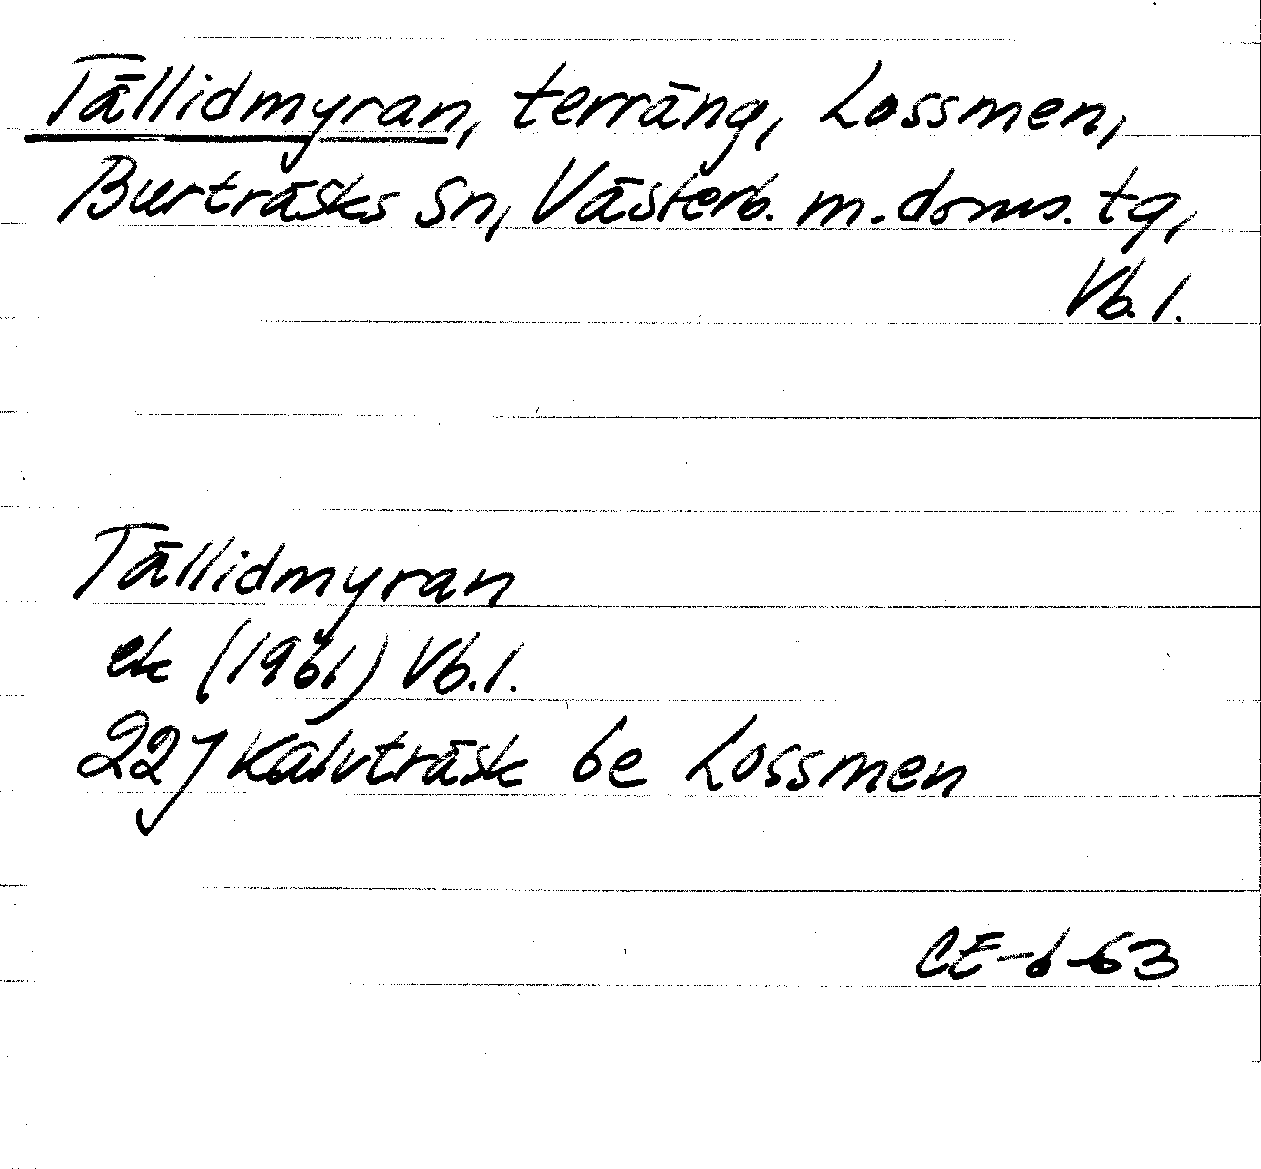 Tällidmyran, terräng, Lossmen,
Burträsks sn, Västerb. m. doms. tg,
Vb. l.
Tällidmyran
ek (1961) Vb. l.
22J Kalvträsk 6e Lossmen
CE-6-63